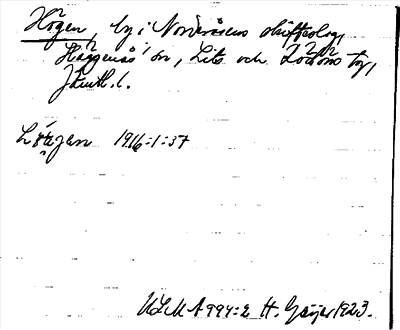 Högen, by i Nordvikens skifteslag,
Häggenås' sn, Lits och Rödöns tg,
Jämtl. l.
Lögen 1916:1:37
ULMA 994:2 H. Geijer 1923.